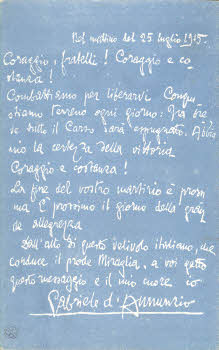 Nel mattino del 25 luglio 1915
Coraggio, fratelli! Coraggio e co-
stanza!
Combattiamo per liberarvi. Conqui-
stiamo terreno ogni giorno. Tra bre-
ve tutto il Carso sarà espugnato. Abbia-
mo la certezza della vittoria
Coraggio e costanza!
La fine del vostro martirio è prossi-
ma. È prossimo il giorno della gran-
de allegrezza
Dall'alto di questo velivolo italiano, che
conduce il prode Miraglia, a voi getto
questo messaggio e il mio cuore io
Gabriele d'Annunzio